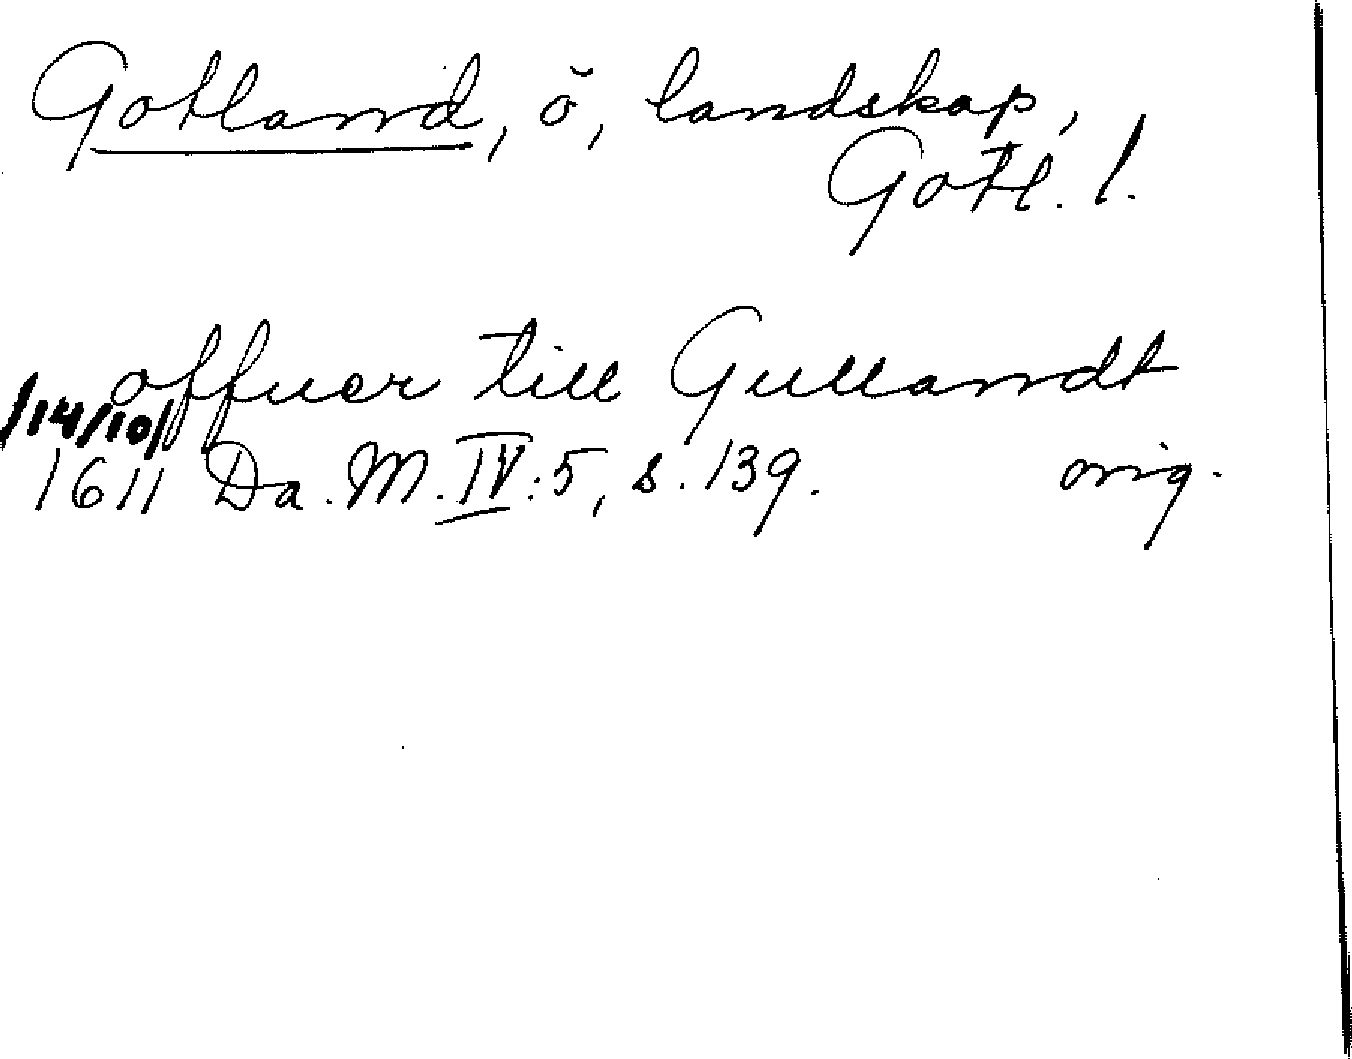 Gotland, ö, landskap,
Gotl. l.
offuer till Gullandt
/14/10/
1611 Da. M. IV:5, s. 139. orig.